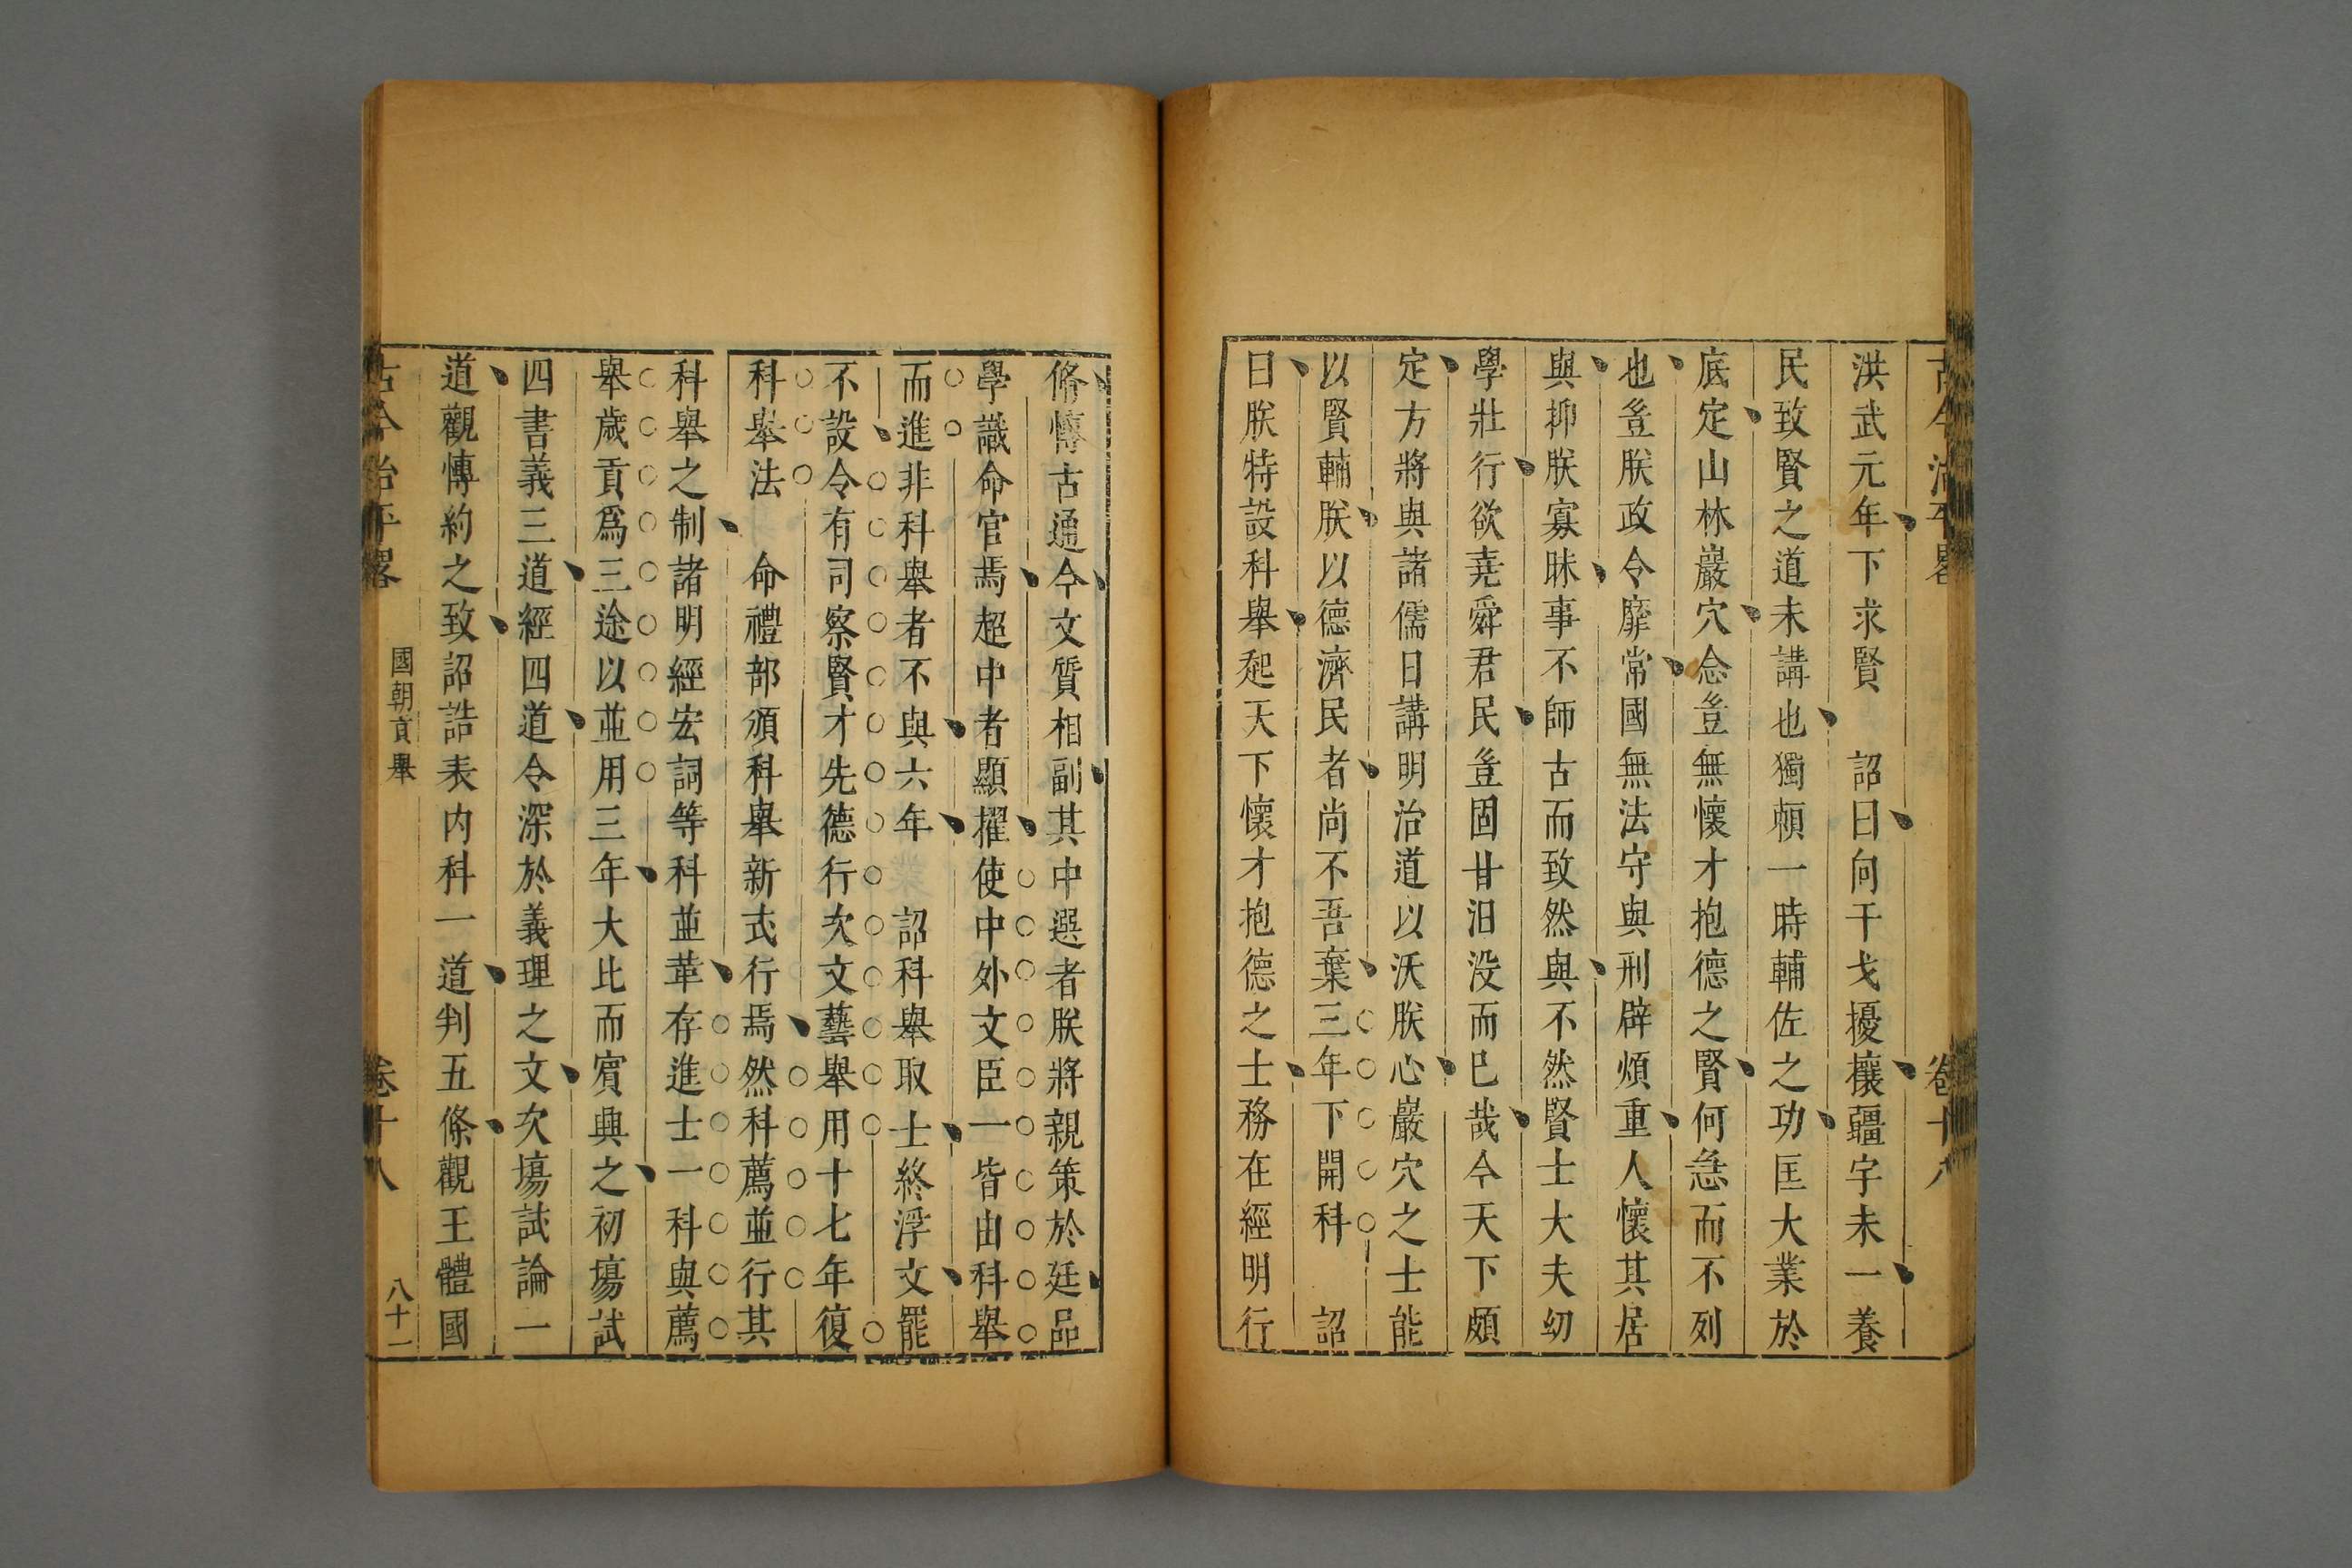 古今治平畧
卷十八
洪武元年下求賢　詔曰向干戈擾攘疆宇未一養
民致賢之道未講也獨賴一時輔佐之功匡大業於
底定山林巖穴念豈無懷才抱德之賢何急而不列
也豈朕政令靡常國無法守與刑辟煩重人懷其居
與抑朕寡昧事不師古而致然與不然賢士大夫幼
學壯行欲堯舜君民豈固甘汨没而已哉今天下頗
定方將與諸儒日講明治道以沃朕心巖穴之士能
以賢輔朕以德濟民者尚不吾棄三年下開科　詔
曰朕特設科舉起天下懷才抱德之士務在經明行
脩慱古通今文質相副其中選者朕將親策於廷品
學識命官焉超中者顯擢使中外文臣一皆由科舉
而進非科舉者不與六年　詔科舉取士終浮文罷
不設令有司察賢才先德行次文藝舉用十七年復
科舉法　命禮部頒科舉新式行焉然科薦並行其
科舉之制諸明經宏詞等科並革存進士一科與薦
舉歲貢爲三途以並用三年大比而賔興之初塲試
四書義三道經四道令深於義理之文次塲試論一
道觀慱約之致詔誥表内科一道判五條觀王體國
古今治平畧
國朝貢舉
卷十八
八十一